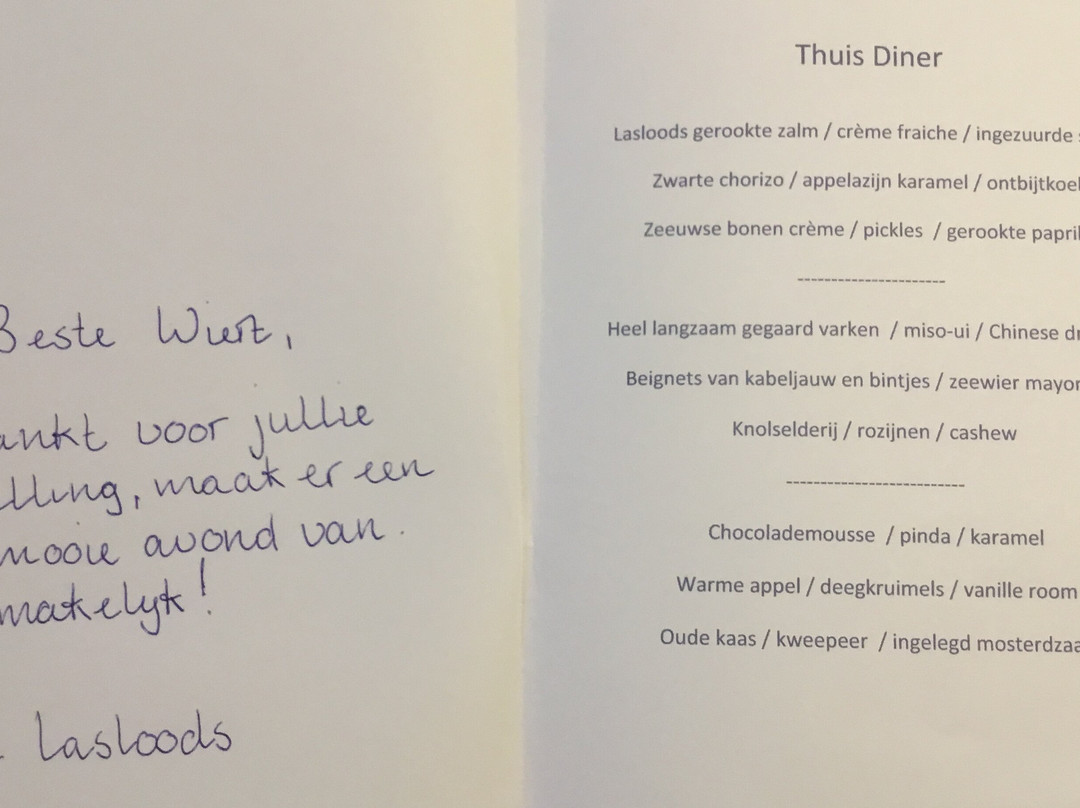 Beste Wiert,
ankt voor jullie
lling, maak er een
mooie avond van.
makelyk!
Lasloods
Thuis Diner
Lasloods gerookte zalm / crème fraiche / ingezuurde
Zwarte chorizo / appelazijn karamel / ontbijtkoe
Zeeuwse bonen crème / pickles / gerookte papri
----------------------
Heel langzaam gegaard varken / miso-ui / Chinese
Beignets van kabeljauw en bintjes / zeewier mayo
Knolselderij / rozijnen / cashew
--------------------------
Chocolademousse / pinda / karamel
Warme appel / deegkruimels / vanille room
Oude kaas / kweepeer / ingelegd mosterdzaa